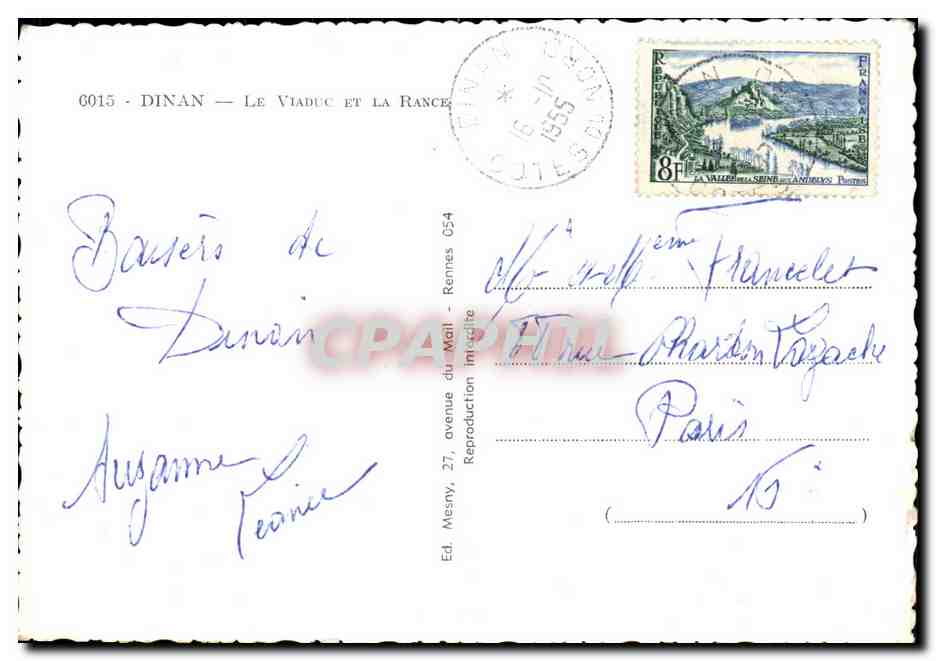 6015 - DINAN — LE VIADUC ET LA RANCE
DINAN
16 -5
1955
COTES DU NORD
REPUBLIQUE FRANCAISE
8F
LA VALLEE DE LA SEINE AUX ANDELYS POSTES
Baisers de
Dinan
Suzanne
Léonice
Ed. Mesny, 27, avenue du Mail - Rennes 054
Reproduction interdite
CPAPHIL
Mr et Mme Francelet
rue Chardon Lagache
Paris